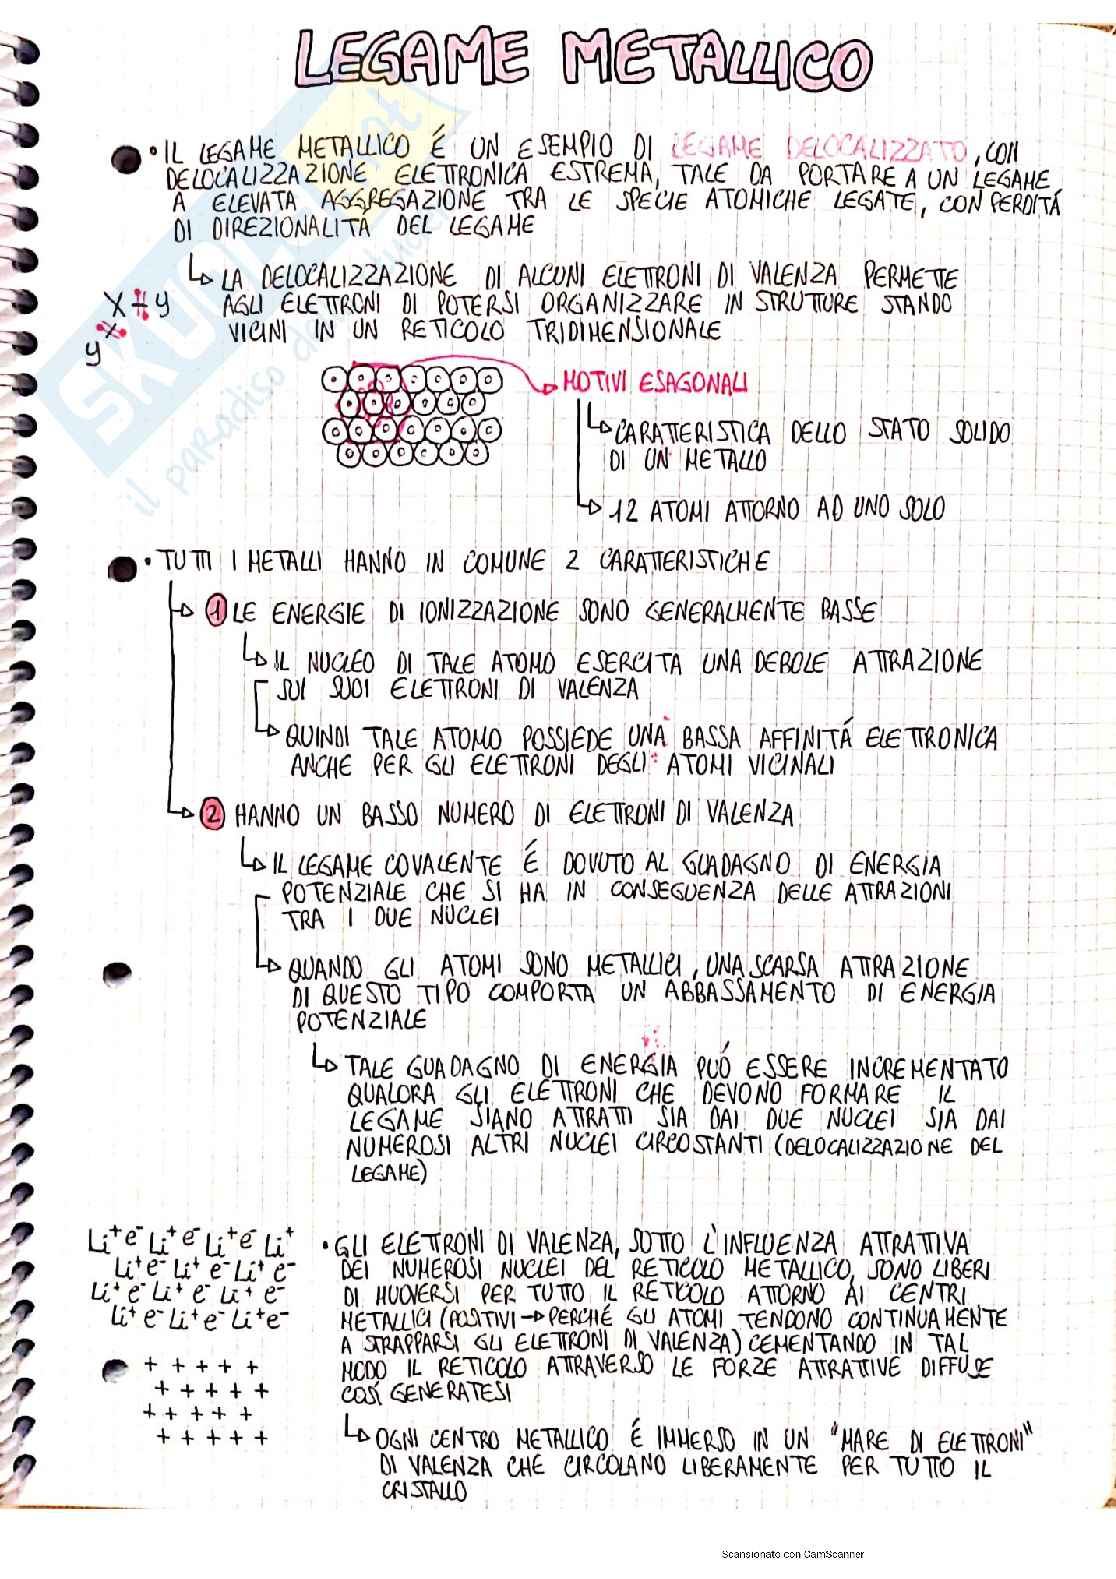 LEGAME METALLICO
• IL LEGAME METALLICO É UN ESEMPIO DI LEGAME DELOCALIZZATO, CON
DELOCALIZZAZIONE ELETTRONICA ESTREMA, TALE DA PORTARE A UN LEGAME
A ELEVATA AGGREGAZIONE TRA LE SPECIE ATOMICHE LEGATE, CON PERDITÁ
DI DIREZIONALITÁ DEL LEGAME
LA DELOCALIZZAZIONE DI ALCUNI ELETTRONI DI VALENZA PERMETTE
AGLI ELETTRONI DI POTERSI ORGANIZZARE IN STRUTTURE STANDO
VICINI IN UN RETICOLO TRIDIMENSIONALE
X + y
X
y
MOTIVI ESAGONALI
CARATTERISTICA DELLO STATO SOLIDO
DI UN METALLO
12 ATOMI ATTORNO AD UNO SOLO
• TUTTI I METALLI HANNO IN COMUNE 2 CARATTERISTICHE
1 LE ENERGIE DI IONIZZAZIONE SONO GENERALMENTE BASSE
IL NUCLEO DI TALE ATOMO ESERCITA UNA DEBOLE ATTRAZIONE
SUI SUOI ELETTRONI DI VALENZA
QUINDI TALE ATOMO POSSIEDE UNA BASSA AFFINITÁ ELETTRONICA
ANCHE PER GLI ELETTRONI DEGLI ATOMI VICINALI
2 HANNO UN BASSO NUMERO DI ELETTRONI DI VALENZA
IL LEGAME COVALENTE É DOVUTO AL GUADAGNO DI ENERGIA
POTENZIALE CHE SI HA IN CONSEGUENZA DELLE ATTRAZIONI
TRA I DUE NUCLEI
QUANDO GLI ATOMI SONO METALLICI, UNA SCARSA ATTRAZIONE
DI QUESTO TIPO COMPORTA UN ABBASSAMENTO DI ENERGIA
POTENZIALE
TALE GUADAGNO DI ENERGIA PUÓ ESSERE INCREMENTATO
QUALORA GLI ELETTRONI CHE DEVONO FORMARE IL
LEGAME SIANO ATTRATTI SIA DAI DUE NUCLEI SIA DAI
NUMEROSI ALTRI NUCLEI CIRCOSTANTI (DELOCALIZZAZIONE DEL
LEGAME)
Li⁺ e⁻ Li⁺ e⁻ Li⁺ e⁻ Li⁺
Li⁺ e⁻ Li⁺ e⁻ Li⁺ e⁻
Li⁺ e⁻ Li⁺ e⁻ Li⁺ e⁻
Li⁺ e⁻ Li⁺ e⁻ Li⁺ e⁻
+ + + + +
+ + + + +
+ + + + +
+ + + + +
• GLI ELETTRONI DI VALENZA, SOTTO L'INFLUENZA ATTRATTIVA
DEI NUMEROSI NUCLEI DEL RETICOLO METALLICO, SONO LIBERI
DI MUOVERSI PER TUTTO IL RETICOLO ATTORNO AI CENTRI
METALLICI (POSITIVI → PERCHÉ GLI ATOMI TENDONO CONTINUAMENTE
A STRAPPARSI GLI ELETTRONI DI VALENZA) CEMENTANDO IN TAL
MODO IL RETICOLO ATTRAVERSO LE FORZE ATTRATTIVE DIFFUSE
COSÍ GENERATESI
OGNI CENTRO METALLICO É IMMERSO IN UN "MARE DI ELETTRONI"
DI VALENZA CHE CIRCOLANO LIBERAMENTE PER TUTTO IL
CRISTALLO
Scansionato con CamScanner